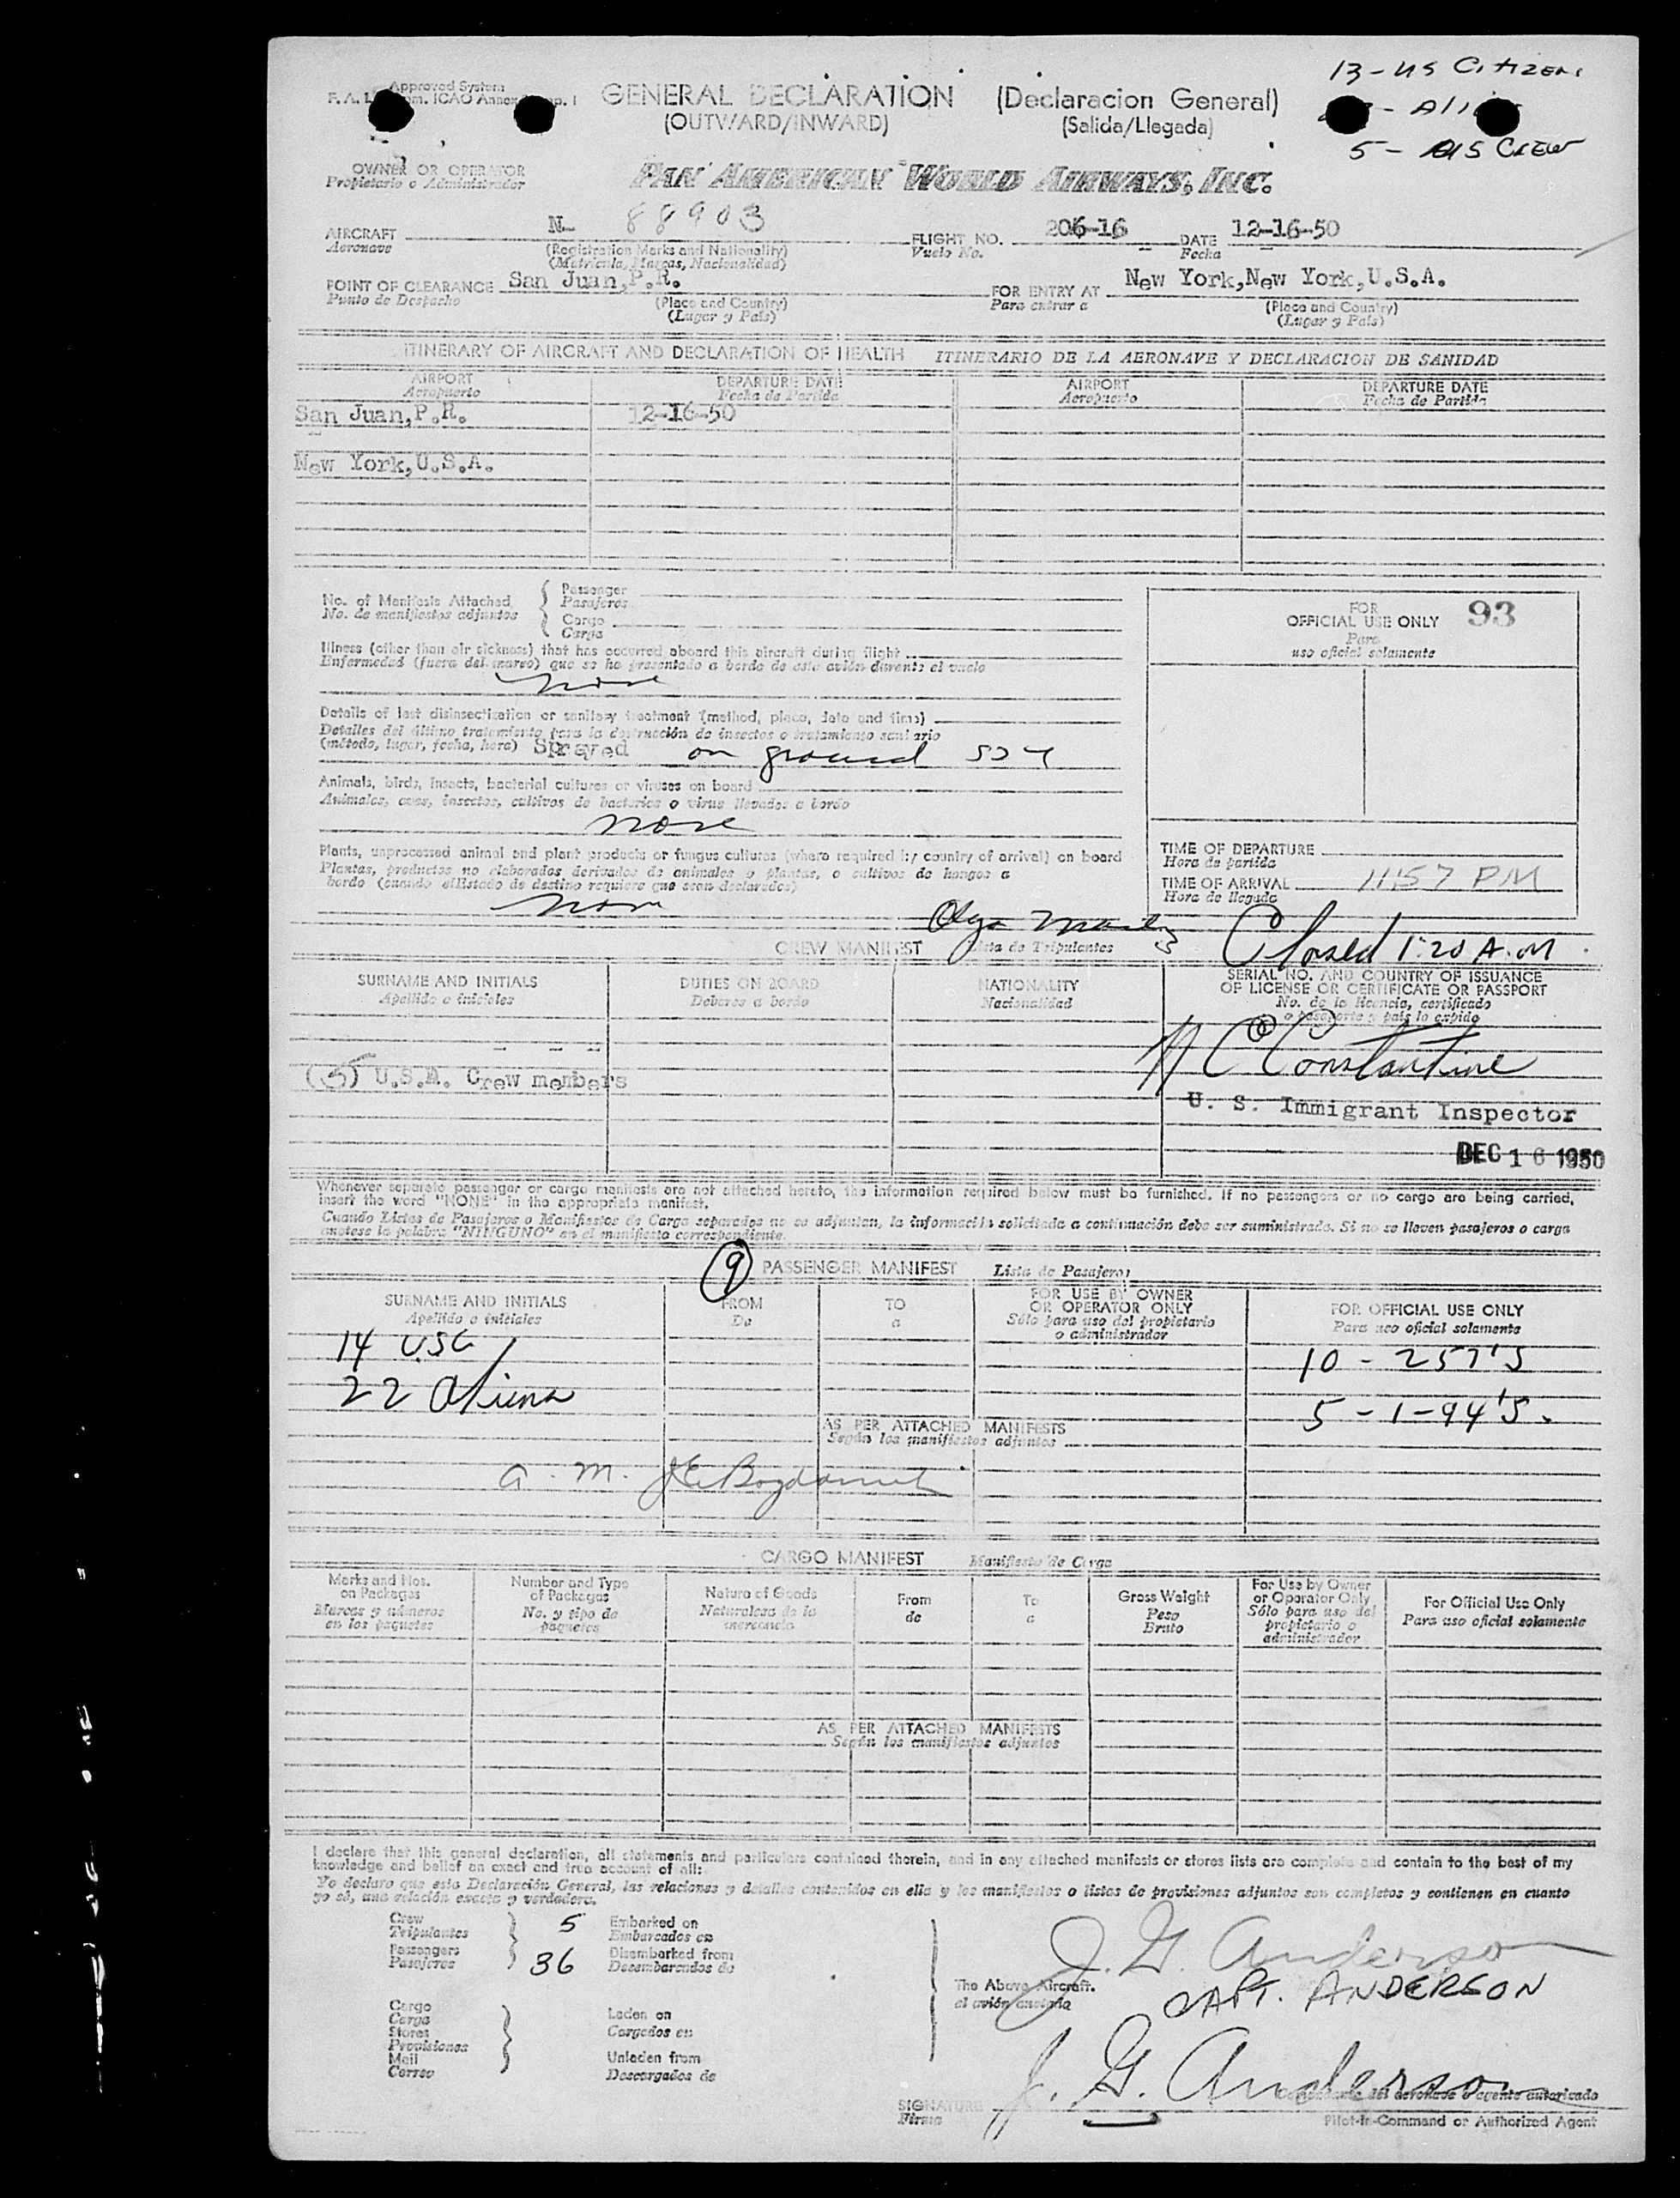 13 - US Citizens
Approved System
GENERAL DECLARATION (Declaracion General)
(OUTWARD/INWARD) (Salida/Llegada)
5 - US Crew
OWNER OR OPERATOR
Propietario o Administrador
PAN AMERICAN WORLD AIRWAYS, INC.
AIRCRAFT N- 88903 FLIGHT NO. 206-16 DATE 12-16-50
Aeronave (Registration Marks and Nationality) Vuelo No. Fecha
(Matricula, Marcas, Nacionalidad)
POINT OF CLEARANCE San Juan,P.R. FOR ENTRY AT New York,New York,U.S.A.
Punto de Despacho (Place and Country) Para entrar a (Place and Country)
(Lugar y País) (Lugar y País)
ITINERARY OF AIRCRAFT AND DECLARATION OF HEALTH ITINERARIO DE LA AERONAVE Y DECLARACION DE SANIDAD
AIRPORT DEPARTURE DATE AIRPORT DEPARTURE DATE
Aeropuerto Fecha de Partida Aeropuerto Fecha de Partida
San Juan,P.R. 12-16-50
New York,U.S.A.
No. of Manifests Attached Passenger
No. de manifiestos adjuntos Pasajeros
Cargo
Carga
FOR
OFFICIAL USE ONLY 93
Para
uso oficial solamente
Illness (other than air sickness) that has occurred aboard this aircraft during flight
Enfermedad (fuera del mareo) que se ha presentado a bordo de este avión durante el vuelo
none
Details of last disinsectization or sanitary treatment (method, place, date and time)
Detalles del último tratamiento para la destrucción de insectos o tratamiento sanitario
(método, lugar, fecha, hora) Sprayed on ground
Animals, birds, insects, bacterial cultures or viruses on board
Animales, aves, insectos, cultivos de bacterias o virus llevados a bordo
none
Plants, unprocessed animal and plant products or fungus cultures (where required by country of arrival) on board
Plantas, productos no elaborados derivados de animales o plantas, o cultivos de hongos a
bordo (cuando el Estado de destino requiere que sean declarados)
none
TIME OF DEPARTURE
Hora de partida
TIME OF ARRIVAL 11:57 PM
Hora de llegada
Closed 1:20 A.M.
CREW MANIFEST Lista de Tripulantes
SURNAME AND INITIALS DUTIES ON BOARD NATIONALITY SERIAL NO. AND COUNTRY OF ISSUANCE
OF LICENSE OR CERTIFICATE OR PASSPORT
Apellido e iniciales Deberes a bordo Nacionalidad No. de la licencia, certificado
o pasaporte y país lo expide
(5) U.S.A. Crew members
Constantine
U. S. Immigrant Inspector
DEC 16 1950
Whenever separate passenger or cargo manifests are not attached hereto, the information required below must be furnished. If no passengers or no cargo are being carried,
insert the word "NONE" in the appropriate manifest.
Cuando Listas de Pasajeros o Manifiestos de Carga separados no se adjuntan, la información solicitada a continuación debe ser suministrada. Si no se lleven pasajeros o carga
anotese la palabra "NINGUNO" en el manifiesto correspondiente.
9 PASSENGER MANIFEST Lista de Pasajeros
SURNAME AND INITIALS FROM TO FOR USE BY OWNER
OR OPERATOR ONLY FOR OFFICIAL USE ONLY
Apellido e iniciales De a Sólo para uso del propietario
o administrador Para uso oficial solamente
14 USC 10 - 257's
22 Aliens 5 - I-94's.
AS PER ATTACHED MANIFESTS
Según los manifiestos adjuntos
CARGO MANIFEST Manifiesto de Carga
Marks and Nos.
on Packages
Marcas y números
en los paquetes
Number and Type
of Packages
No. y tipo de
paquetes
Nature of Goods
Naturaleza de la
mercancía
From
de
To
a
Gross Weight
Peso
Bruto
For Use by Owner
or Operator Only
Sólo para uso del
propietario o
administrador
For Official Use Only
Para uso oficial solamente
AS PER ATTACHED MANIFESTS
Según los manifiestos adjuntos
I declare that this general declaration, all statements and particulars contained therein, and in any attached manifests or stores lists are complete and contain to the best of my
knowledge and belief an exact and true account of all:
Yo declaro que esta Declaración General, las relaciones y detalles contenidos en ella y los manifiestos o listas de provisiones adjuntos son completos y contienen en cuanto
yo sé, una relación exacta y verdadera.
Crew 5 Embarked on
Tripulantes Embarcados en
Passengers 36 Disembarked from
Pasajeros Desembarcados de
J. G. Anderson
The Above Aircraft.
CAPT. ANDERSON
Cargo
Carga
Stores
Provisiones
Mail
Correo
Laden on
Cargados en
Unladen from
Descargados de
J. G. Anderson
SIGNATURE
Firma
Pilot-in-Command or Authorized Agent